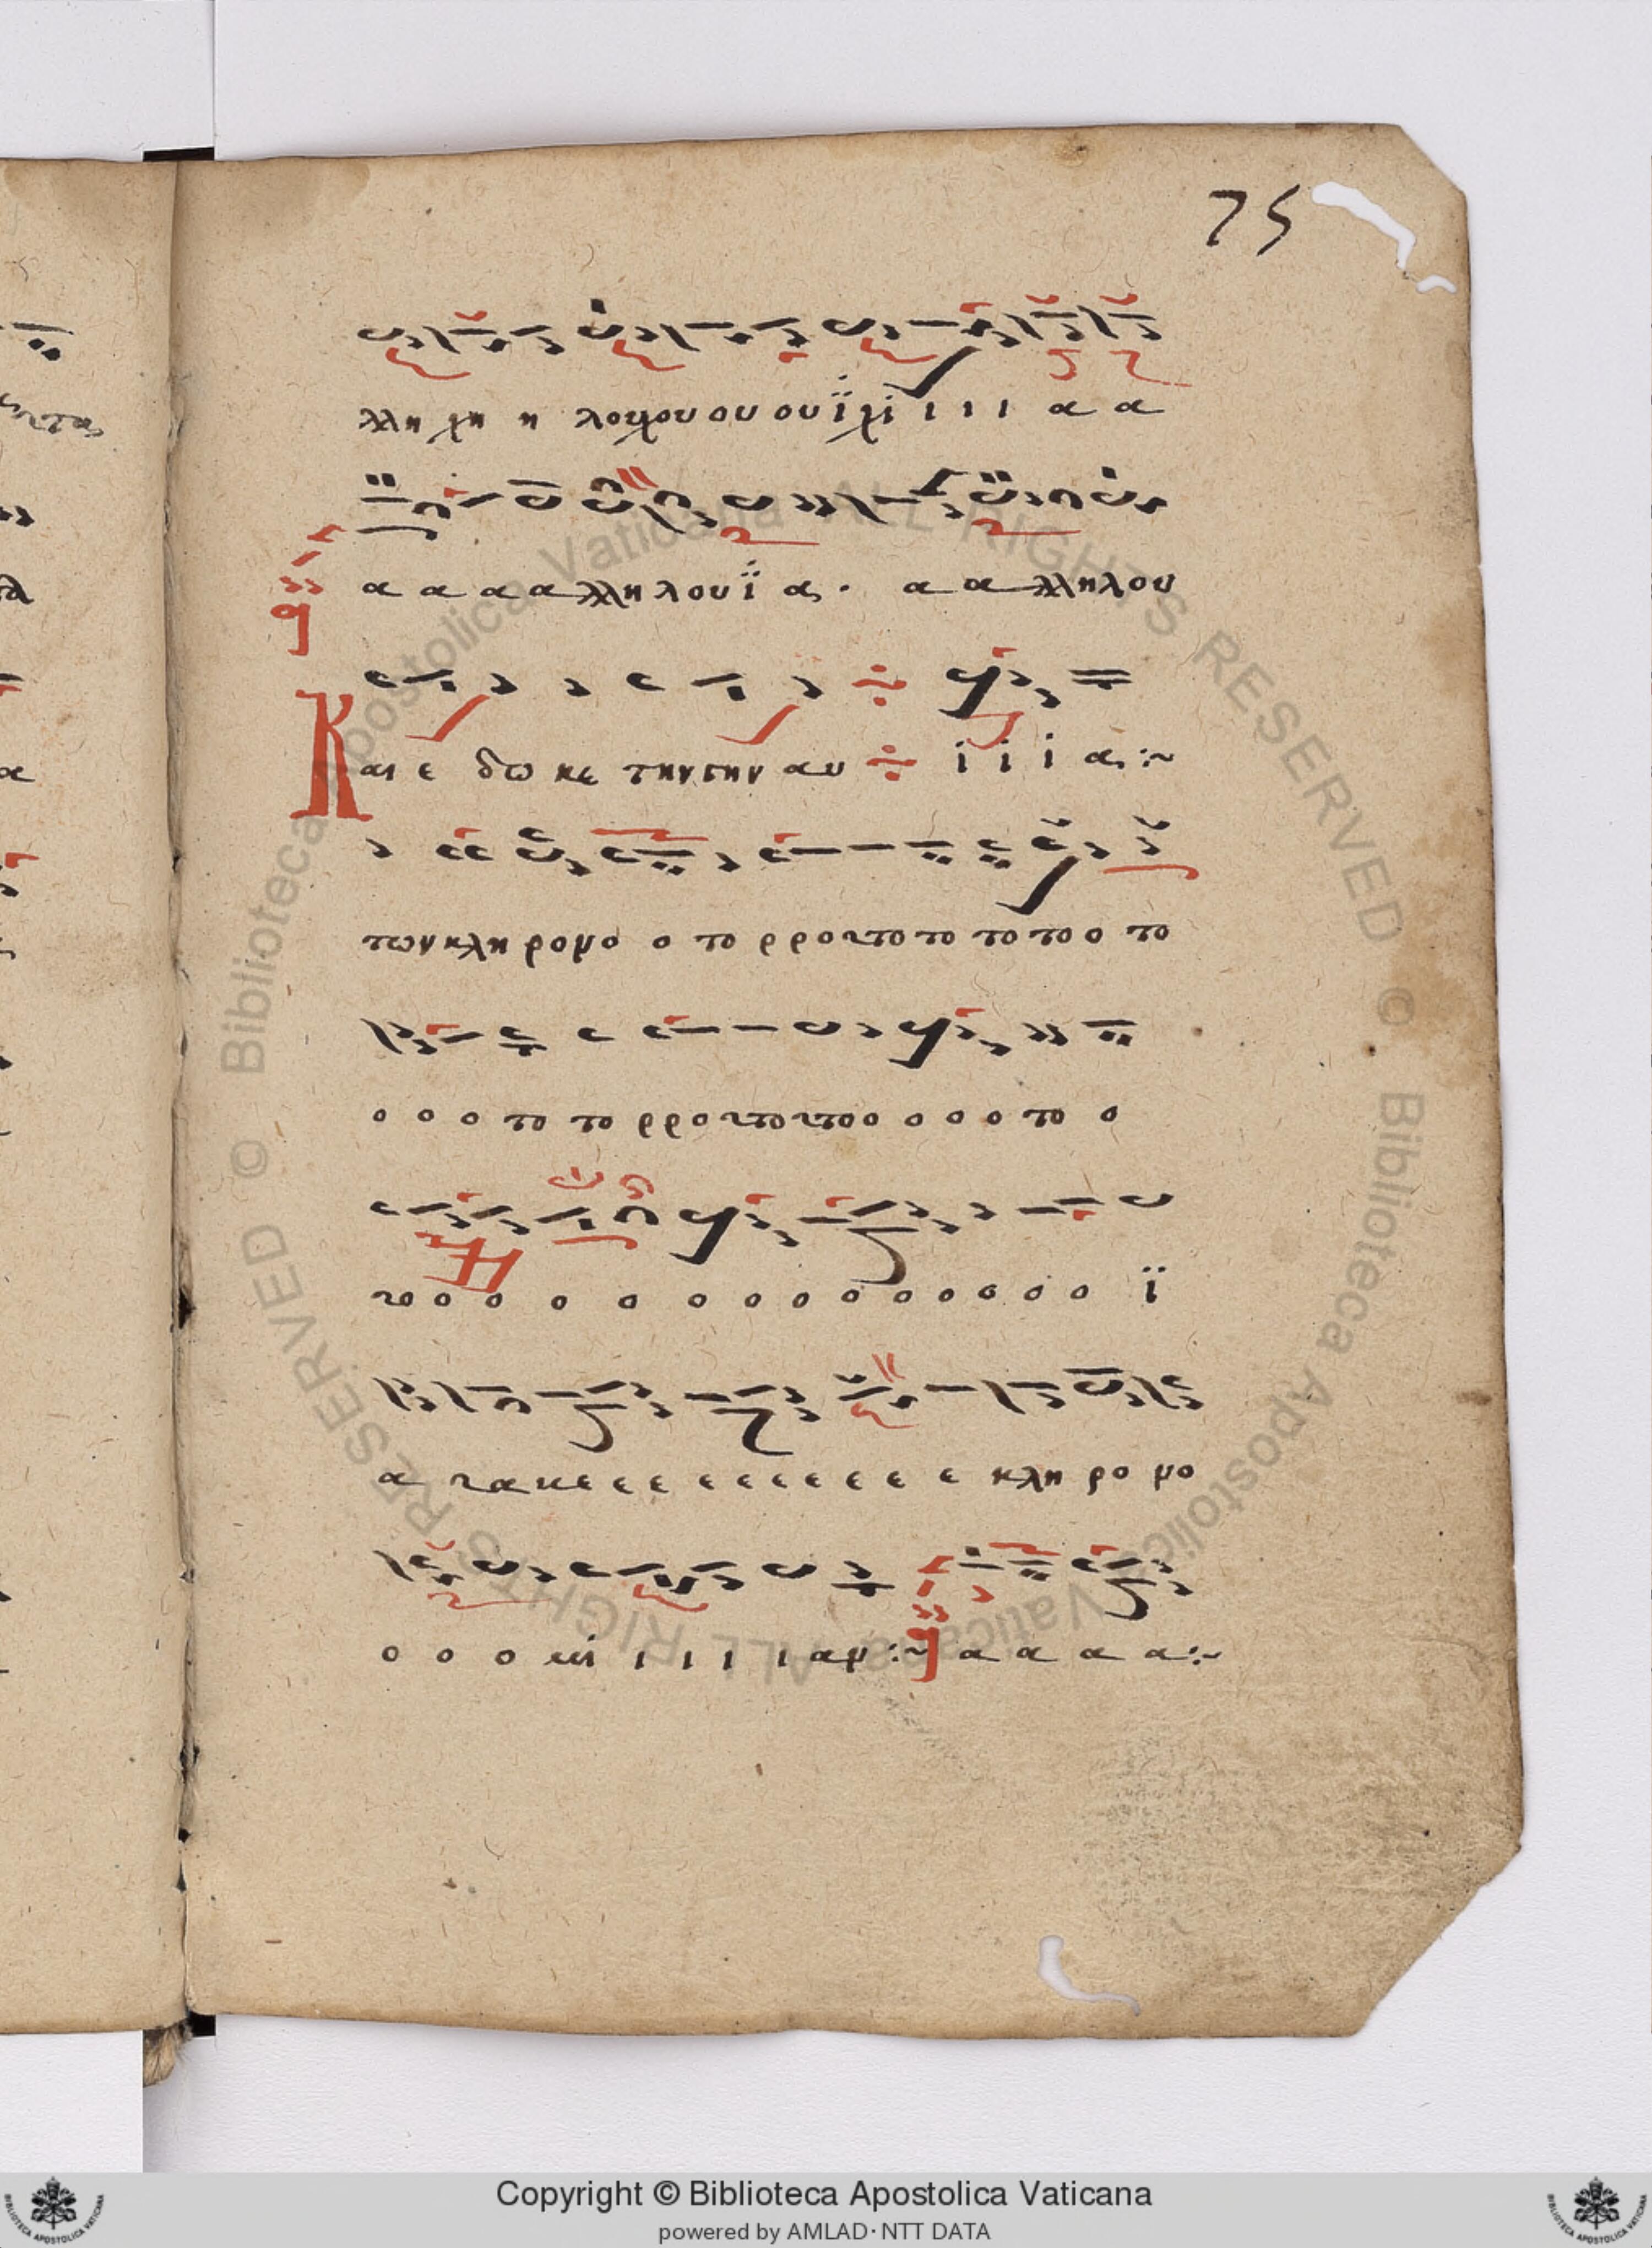 75
λλη χη η λουχου ου ου ϊ χι ι ι ι α α
α α α αλληλουϊ α. α αλληλου
Και ε δω κε την γην αυ ι ι ι α :~
των κλη ρο μο ο το ρρο το το το το ο το
ο ο ο το το ρρο το το ο ο ο ο το ο
το ο ο ο ο ο ο ο ο ο ο ο ο ο ϊ
α τα κε ε ε ε ε ε ε ε ε κλη ρο μο
ο ο ο ι ι ι ι α :~ α α α α :~
© Biblioteca Apostolica Vaticana ALL RIGHTS RESERVED © Biblioteca Apostolica Vaticana ALL RIGHTS RESERVED
Copyright © Biblioteca Apostolica Vaticana
powered by AMLAD·NTT DATA